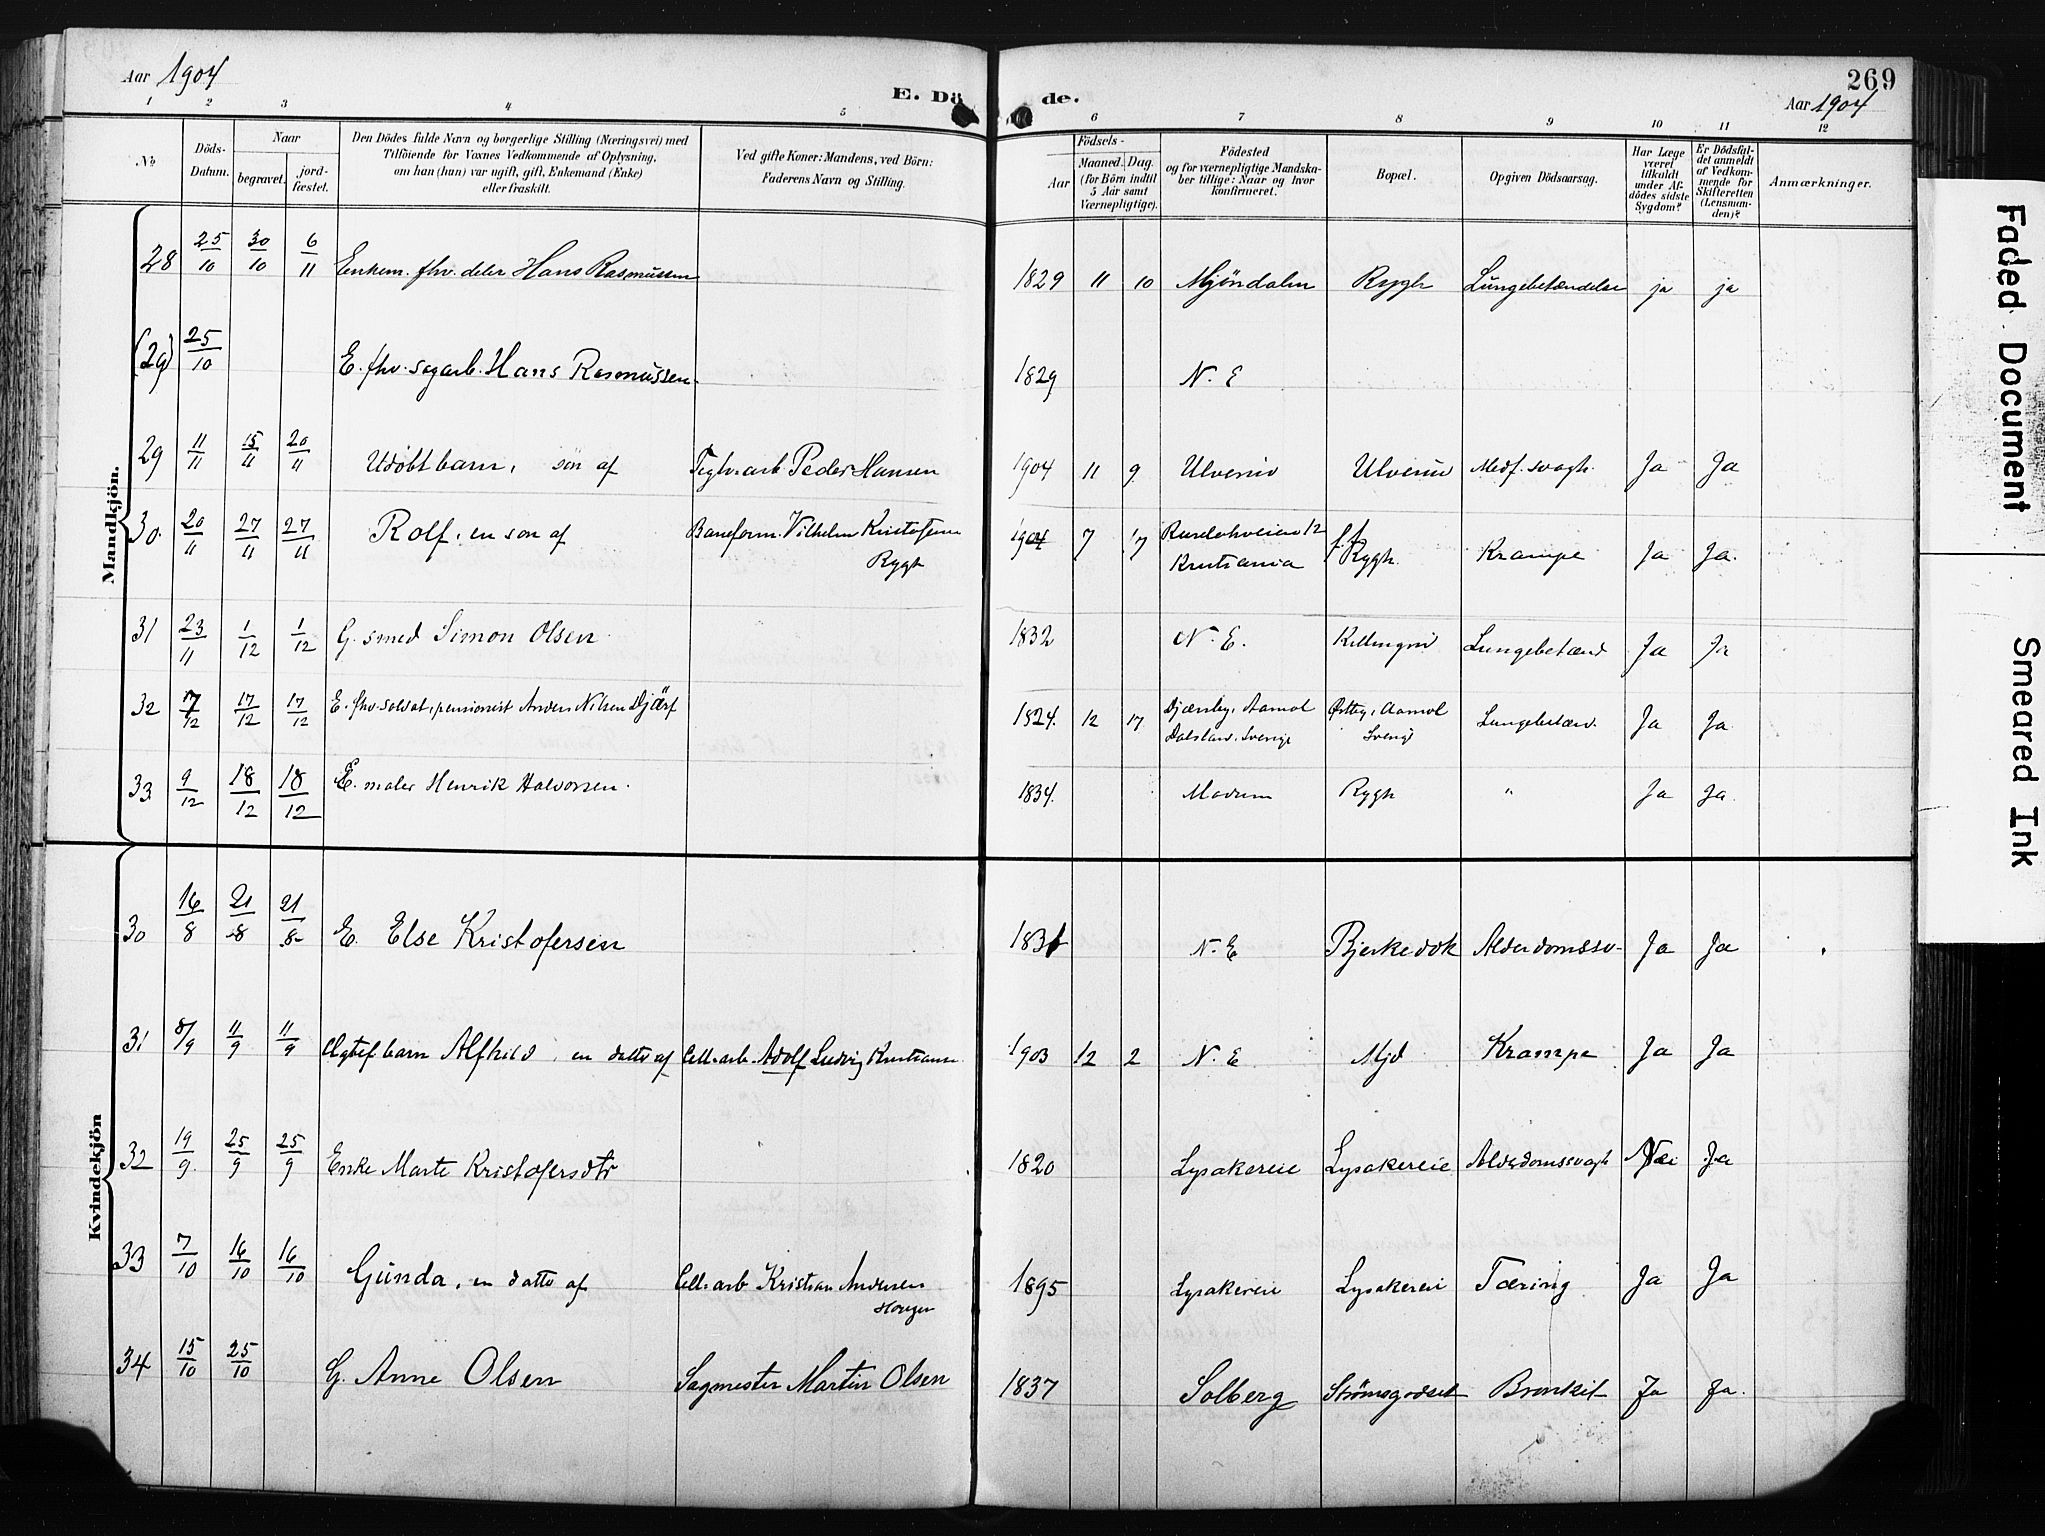 Aar 1904
E. Döde.
269
Aar 1904
1 2 3 4 5 6 7 8 9 10 11 12
No
Döds-Datum.
Naar
begravet.
jordfæstet.
Den Dödes fulde Navn og borgerlige Stilling (Næringsvei) med
Tilföiende for Voxnes Vedkommende af Oplysning,
om han (hun) var ugift, gift, Enkemand (Enke)
eller fraskilt.
Ved gifte Koner: Mandens, ved Börn:
Faderens Navn og Stilling.
Födsels-
Aar
Maaned. Dag.
(for Börn indtil
5 Aar samt
Værnepligtige).
Födested
og for værnepligtige Mandska-
ber tillige: Naar og hvor
konfirmeret.
Bopæl.
Opgiven Dödsaarsag.
Har Læge
været
tilkaldt
under Af-
dödes sidste
Sygdom?
Er Dödsfal-
det anmeldt
af Vedkom-
mende for
Skifteretten
(Lensman-
den)?
Anmærkninger.
Mandkjön.
28 25/10 30/10 6/11 Enkem. fhv. deler Hans Rasmussen 1829 11 10 Mjöndalen Rygh Lungebetændelse ja ja
(29) 25/10 E. fhv. sagarb. Hans Rasmussen. 1829 N. E
29 11/11 15/11 20/11 Udöbt barn, sön af Teglv.arb. Peder Hansen 1904 11 9 Ulverud Ulverud Medf. svagh. Ja Ja
30. 20/11 27/11 27/11 Rolf, en sön af Baneform. Vilhelm Kristofersen
Rygh
1904 7 17 12
Kristiania
Rygh. Krampe Ja Ja.
31 23/11 1/12 1/12 G. smed Simon Olsen 1832 N. E. Killingrud Lungebetænd Ja Ja
32 7/12 17/12 17/12 E. fhv. soldat, pensionist Anders Nilsen Djärf 1824. 12 17 Djærsby, Aamol
Dalsland, Sverige
Østby, Aamol
Sverige
Lungebetæn. Ja Ja.
33 9/12 18/12 18/12 E. maler Henrik Halvorsen. 1834. Modum Rygh " Ja Ja.
Kvindekjön
30 16/8 21/8 21/8 E. Else Kristofersen 1831 N. E Bjerkedok Alderdomssv. Ja Ja
31 8/9 11/9 11/9 Ægtef. barn Alfhild, en datter af Cell.arb. Adolf Ludvig Kristiansen 1903 12 2 N. E Mjd Krampe Ja Ja
32 19/9 25/9 25/9 Enke Marte Kristofersdtr 1820 Lysakereie Lysakereie Alderdomssvagh Nei Ja
33 7/10 16/10 16/10 Gunda, en datter af Cell.arb Kristian Andersen
Horgen
1895 Lysakereie Lysakereie Tæring Ja Ja
34 15/10 25/10 G. Anne Olsen Sagmester Martin Olsen 1837 Solberg Strømsgodset Bronkit Ja Ja.
Faded Document
Smeared Ink